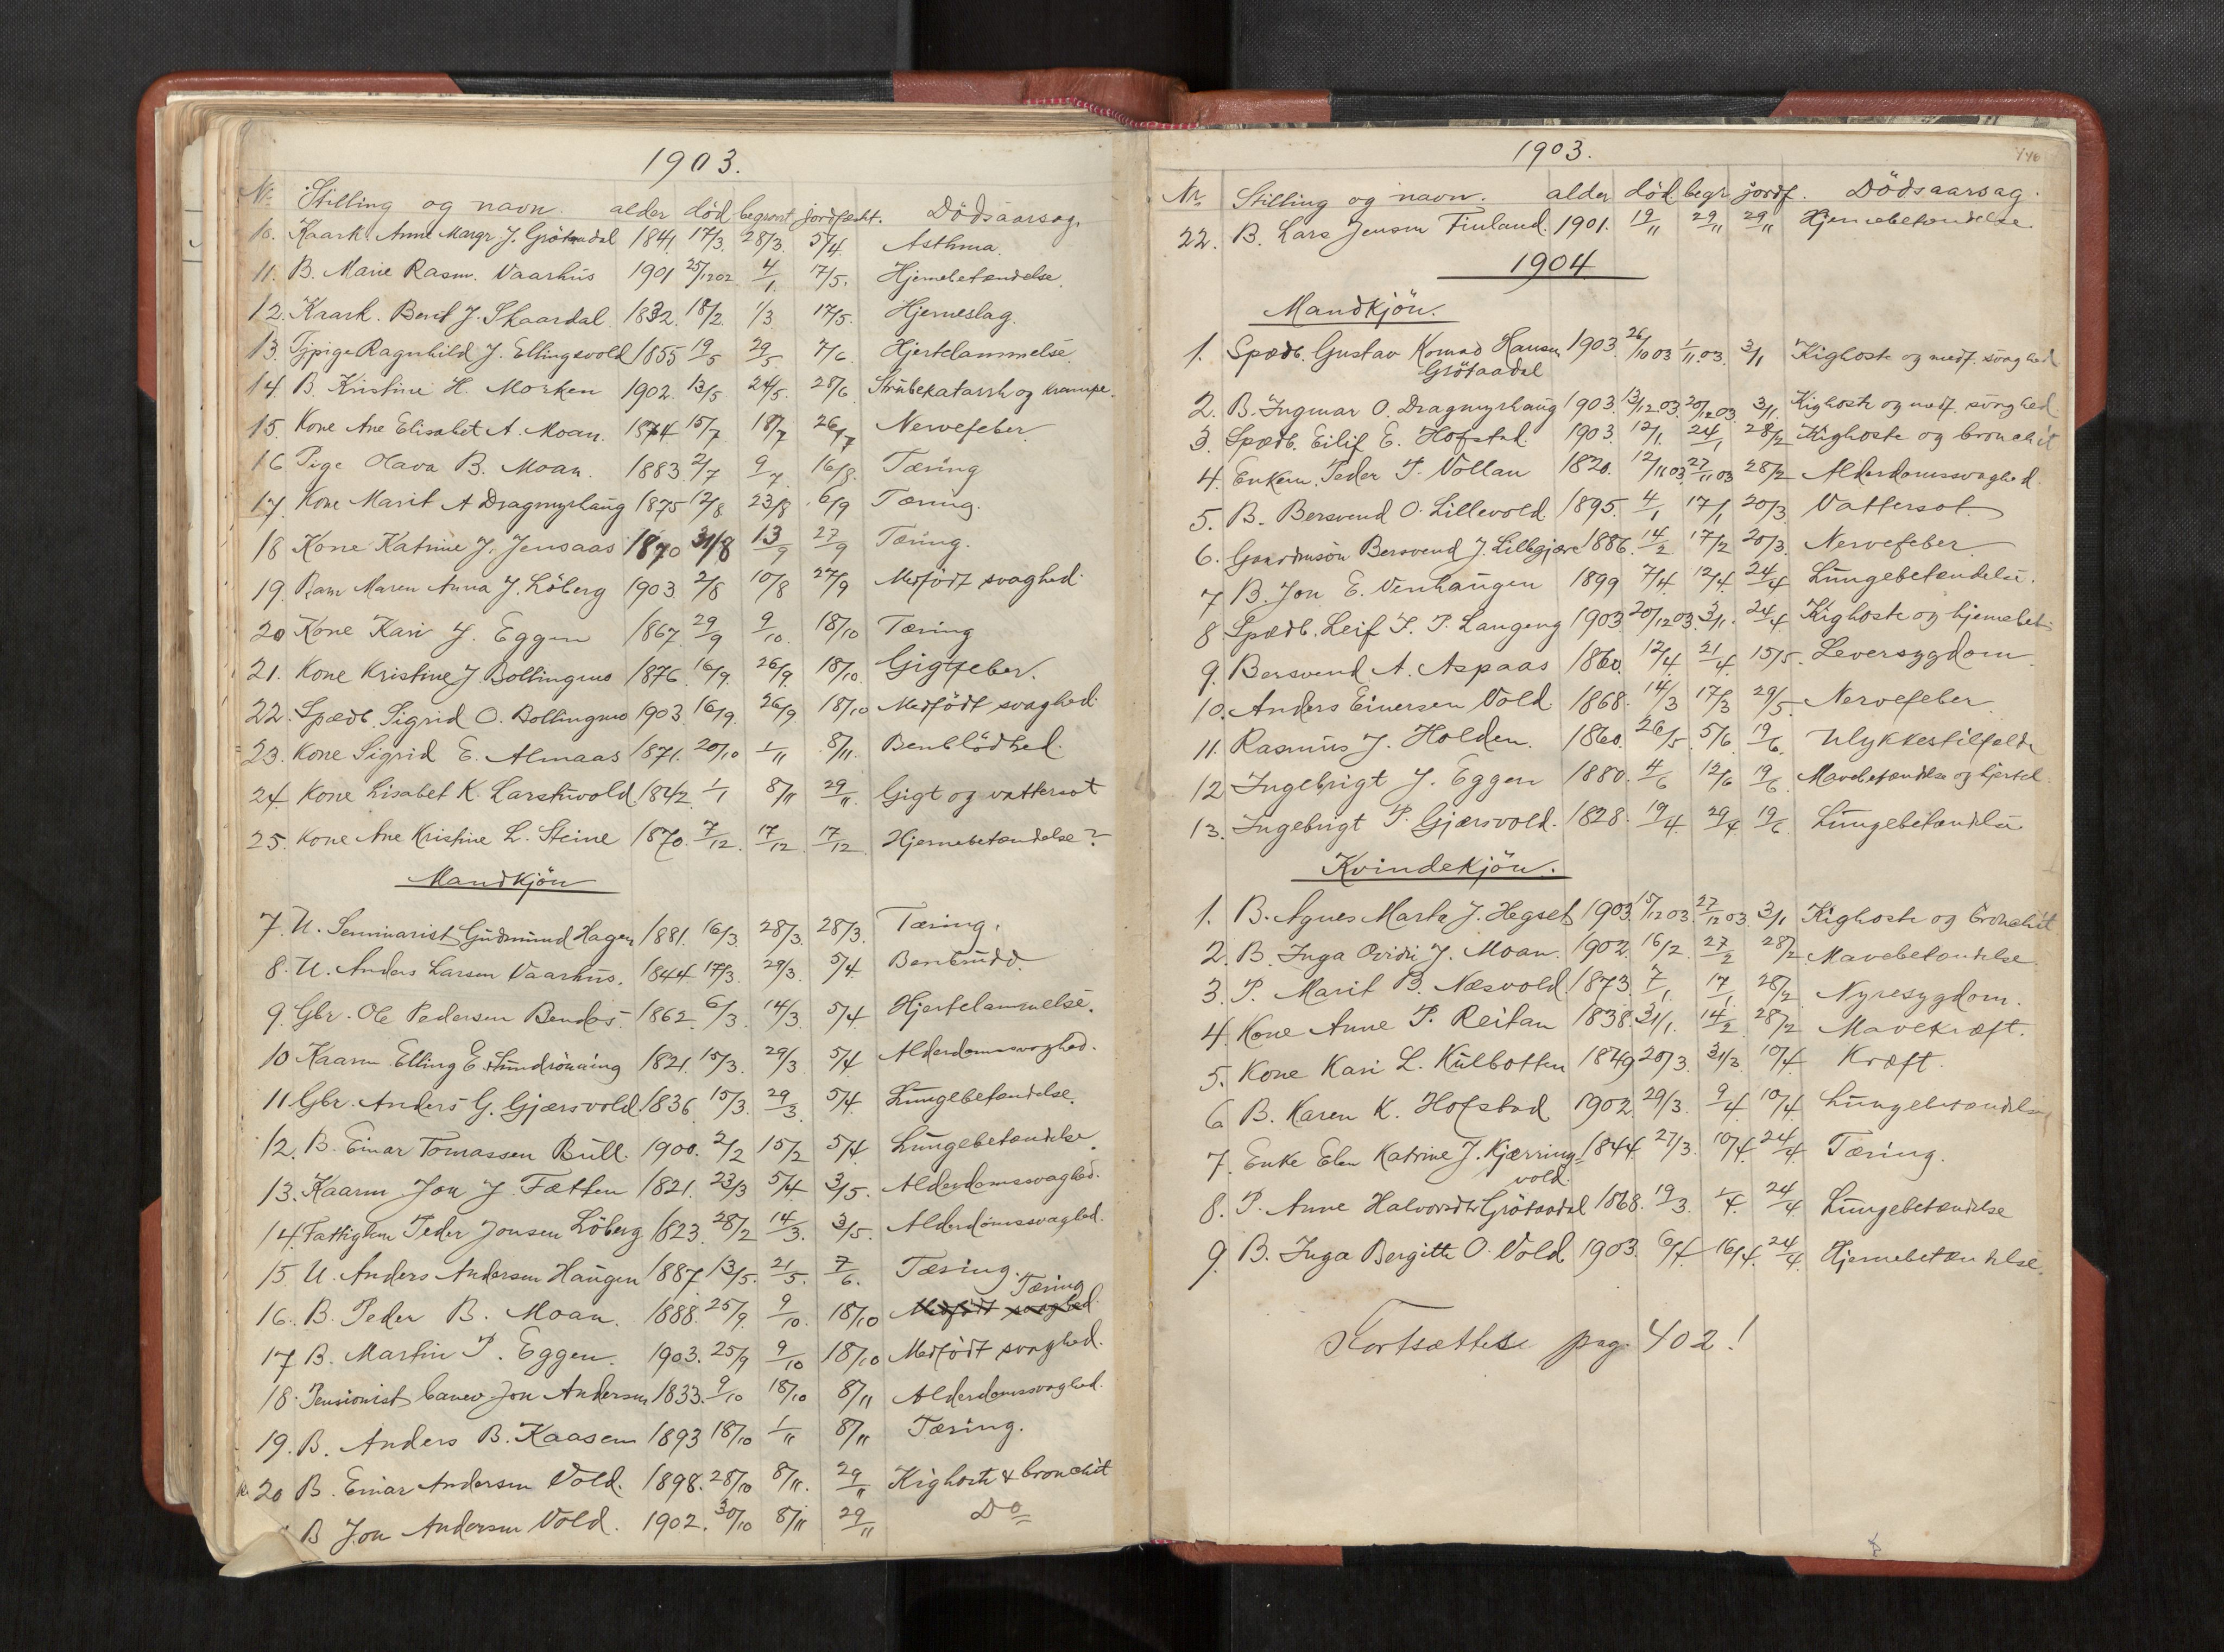 1903.
No Stilling og navn. alder död begravet jordfæstet. Dödsaarsag.
10. Kaark. Anne Margr J. Grötaadal 1841 17/3. 28/3. 5/4. Asthma.
11. B. Marie Rasm. Vaarhus 1901 25/12 02 4/1. 17/5. Hjernebetændelse.
12. Kaark. Berit J. Skaardal 1832. 18/2. 1/3 17/5. Hjerneslag.
13. Tjpige Ragnhild J. Ellingsvold 1855 19/5 29/5 7/6. Hjertelammelse.
14. B. Kristine H. Morken 1902. 13/5 24/5. 28/6. Strubekatarrh og Krampe.
15. Kone Ane Elisabet A. Moan. 1874 15/7 18/7 26/7 Nervefeber
16 Pige Olava B. Moan. 1883 2/7 9/7 16/8. Tæring
17. Kone Marit A Dragmyrhaug 1875 12/8. 23/8 6/9 Tæring.
18 Kone Katrine J. Jensaas 1870 31/8 13/9 27/9 Tæring.
19. Barn Maren Anna J. Löberg 1903 2/8 10/8 27/9 Medfödt svaghed.
20 Kone Kari J. Eggen 1867. 29/9 9/10. 18/10 Tæring
21. Kone Kristine J. Bollingmo 1876. 16/9. 26/9. 18/10. Gigtfeber.
22. Spædb. Sigrid O. Bollingmo 1903. 16/9. 26/9. 18/10 Medfödt svaghed.
23. Kone Sigrid E. Almaas 1871. 20/10 1/11 8/11. Benblödhed.
24. Kone Lisabet K. Larshusvold 1842. 1/1 8/11 29/11. Gigt og vattersot
25. Kone Ane Kristine L. Steine 1870. 7/12. 17/12 17/12 Hjernebetændelse?
Mandkjön
7. U. Seminarist Gudmund Hagen 1881. 16/3. 28/3. 28/3. Tæring.
8. U. Anders Larsen Vaarhus. 1844. 17/3. 29/3. 5/4 Benbrudd.
9. Gbr. Ole Pedersen Bendos. 1862. 6/3. 14/3. 5/4 Hjertelammelse.
10 Kaarm. Elling E. 1821. 15/3. 29/3 5/4 Alderdomssvaghed.
11 Gbr. Anders G. Gjærsvold 1836 15/3. 29/3 5/4 Lungebetændelse.
12. B. Einar Tomassen Bull. 1900. 2/2 15/2 5/4 Lungebetændelse.
13. Kaarm Jon J. Fætten 1821. 23/3 5/4. 3/5. Alderdomssvaghed.
14. Fattiglem Peder Jonsen Löberg 1823. 28/2 14/3. 3/5. Alderdomssvaghed.
15. U. Anders Andersen Haugen 1887 13/5. 21/5. 7/6. Tæring.
Tæring
16. B. Peder B. Moan. 1888. 25/9. 9/10. 18/10 Medfödt svaghed.
17 B. Martin P. Eggen. 1903. 25/9 9/10 18/10 Medfödt svaghed.
18. Pensionist Jon Andersen 1833. 9/10 18/10 8/11 Alderdomssvaghed.
19. B. Anders B. Kaasen 1893 18/10 1/11 8/11 Tæring.
20 B. Einar Andersen Vold. 1898. 28/10 8/11. 29/11 Kighoste & bronchit
B Jon Andersen Vold. 1902. 30/10 8/11 29/11 Do
1903.
Nr Stilling og navn. alder död begr. jordf. Dödsaarsag.
22. B. Lars Jensen Finland. 1901. 19/11 29/11 29/11 Hjernebetændelse
1904
Mandkjön.
1. Spædb. Gustav Konrad Hansen 1903. 26/10 03 1/11 03. 3/1 Kighoste og medf. svaghed
Grötaadal
2. B. Ingmar O. Dragmyrhaug 1903. 13/12 03. 20/12 03 3/1. Kighoste og medf. svaghed.
3. Spædb. Eilif E. Hofstad. 1903. 12/1. 24/1 28/2 Kighoste og bronchit
4. Enkem. Peder P. Vollan 1820. 12/11 03 27/11 03 28/2 Alderdomssvaghed
5. B. Bersvend O. Lillevold. 1895. 4/1 17/1 20/3 Vattersot.
6. Gaardmsön Bersvend J. Lillegjære 1886. 14/2 17/2 20/3. Nervefeber
7 B. Jon E. Venhaugen 1899 7/4. 12/4. 24/4 Lungebetændelse.
8 Spædb. Leif P. P. Langeng 1903 20/12 03. 3/1. 24/4. Kighoste og hjernebet.
9. Bersvend A. Aspaas 1860. 12/4. 21/4. 15/5. Leversygdom
10. Anders Einersen Vold. 1868. 14/3 17/3 29/5. Nervefeber
11. Rasmus J. Holden. 1860. 26/5. 5/6. 19/6. Ulykkestilfælde
12 Ingebrigt J. Eggen 1880. 4/6 12/6 19/6. Mavebetændelse og hjertel.
13. Ingebrigt P. Gjærsvold. 1828. 19/4. 29/4. 19/6 Lungebetændelse
Kvindekjön.
1. B. Agnes Marta J. Hegset 1903. 15/12 03. 27/12 03 3/1 Kighoste og bronchit
2. B. Inga Ovidi J. Moan. 1902. 16/2. 27/2 28/2. Mavebetændelse
3. P. Marit B. Næsvold. 1873. 7/1. 17/1. 28/2. Nyresygdom.
4. Kone Anne P. Reitan 1838. 31/1. 14/2 28/2 Mavekræft.
5. Kone Kari L. Kulbotten 1849 20/3. 31/3. 10/4 Kræft.
6 B. Karen K. Hofstad 1902. 29/3. 9/4 10/4 Lungebetændelse
7. Enke Elen Katrine J. Kjærring= 1844. 27/3. 10/4. 24/4. Tæring.
vold.
8. P. Anne Halvorsdtr Grötaadal 1868. 19/3. 1/4. 24/4 Lungebetændelse
9. B. Inga Bergitte O. Vold 1903. 6/4. 16/4. 24/4. Hjernebetændelse.
Fortsættes pag. 402!